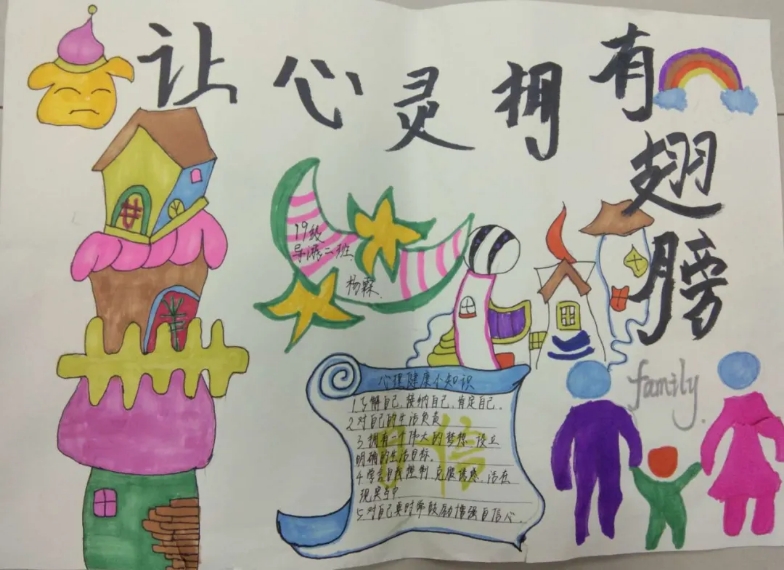 让心灵拥有翅膀
19级
导游二班
杨霖
心理健康小知识
1了解自己、接纳自己、肯定自己。
2对自己的生活负责
3拥有一个伟大的梦想、设立
明确的生活目标。
4学会自我控制,克服诱惑,活在
现实当中
5对自己要时常鼓励增强自信心。
信
family